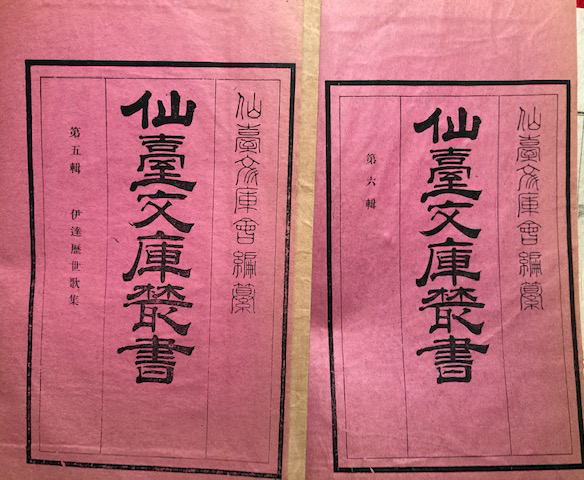 仙臺文庫會編纂
仙臺文庫叢書
第六輯
仙臺文庫會編纂
仙臺文庫叢書
第五輯 伊達歷世歌集